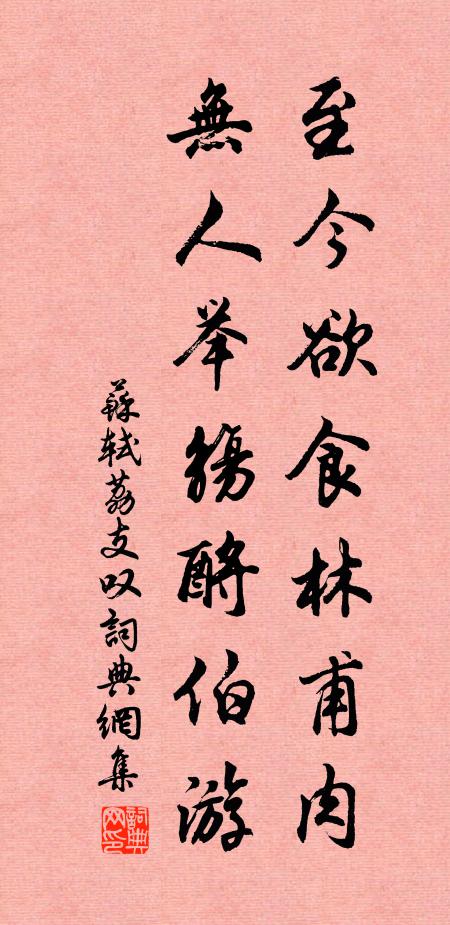 至今欲食林甫肉
無人举觴酹伯游
蘇轼荔支叹詞典網集
詞典網印